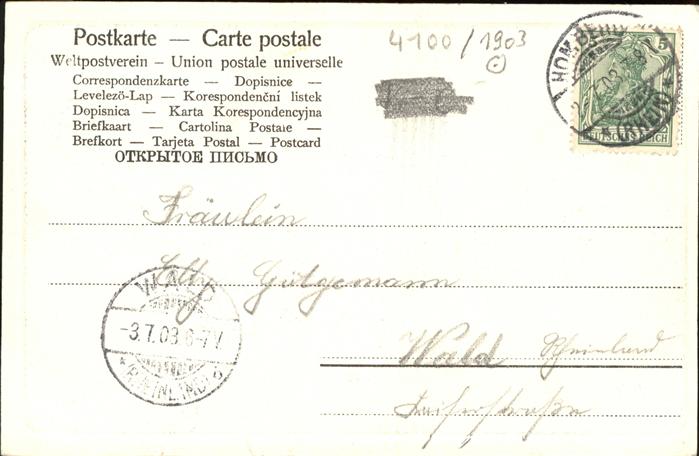 Postkarte — Carte postale
Weltpostverein – Union postale universelle
Correspondenzkarte — Dopisnice —
Levelezö-Lap — Korespondenční listek
Dopisnica — Karta Korespondencyjna
Briefkaart — Cartolina Postale —
Brefkort — Tarjeta Postal — Postcard
ОТКРЫТОЕ ПИСЬМО
4100/1903
5
DEUTSCHES REICH
HOMBERG
(RHEIN)
Fräulein
Elly Gütgemann
Wald Rheinland
Kaiserstraße
WALD
-3.7.03 6-7 V
(RHEINLAND)